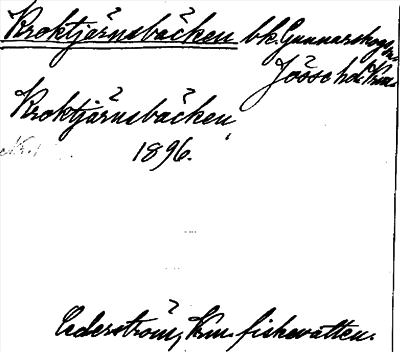 Kroktjärnsbäcken bk. Gunnarskogs sn.
Jösse hd. Vrm.
Kroktjärnsbäcken
1896.
Cederström, Vrm. fiskevatten.